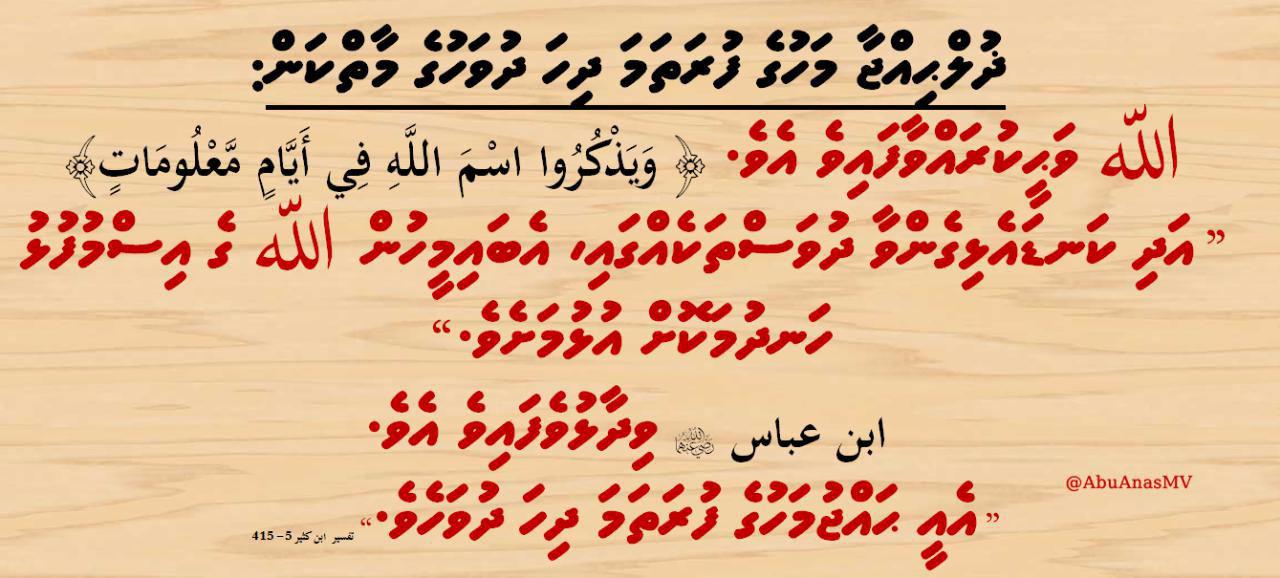 ޛުލްޙިއްޖާ މަހުގެ ފުރަތަމަ ދިހަ ދުވަހުގެ މާތްކަން:
الله ވަޙީކުރައްވާފައިވެ އެވެ. ﴿ وَيَذْكُرُوا اسْمَ اللَّهِ فِي أَيَّامٍ مَّعْلُومَاتٍ﴾
” އަދި ކަނޑައެޅިގެންވާ ދުވަސްތަކެއްގައި، އެބައިމީހުން الله ގެ އިސްމުފުޅު
ހަނދުމަކޮށް އުޅުމަށެވެ.“
ابن عباس رضي الله عنهما ވިދާޅުވެފައިވެ އެވެ.
@AbuAnasMV
” އެއީ ޙައްޖުމަހުގެ ފުރަތަމަ ދިހަ ދުވަހެވެ.“ تفسير ابن كثير 5 – 415